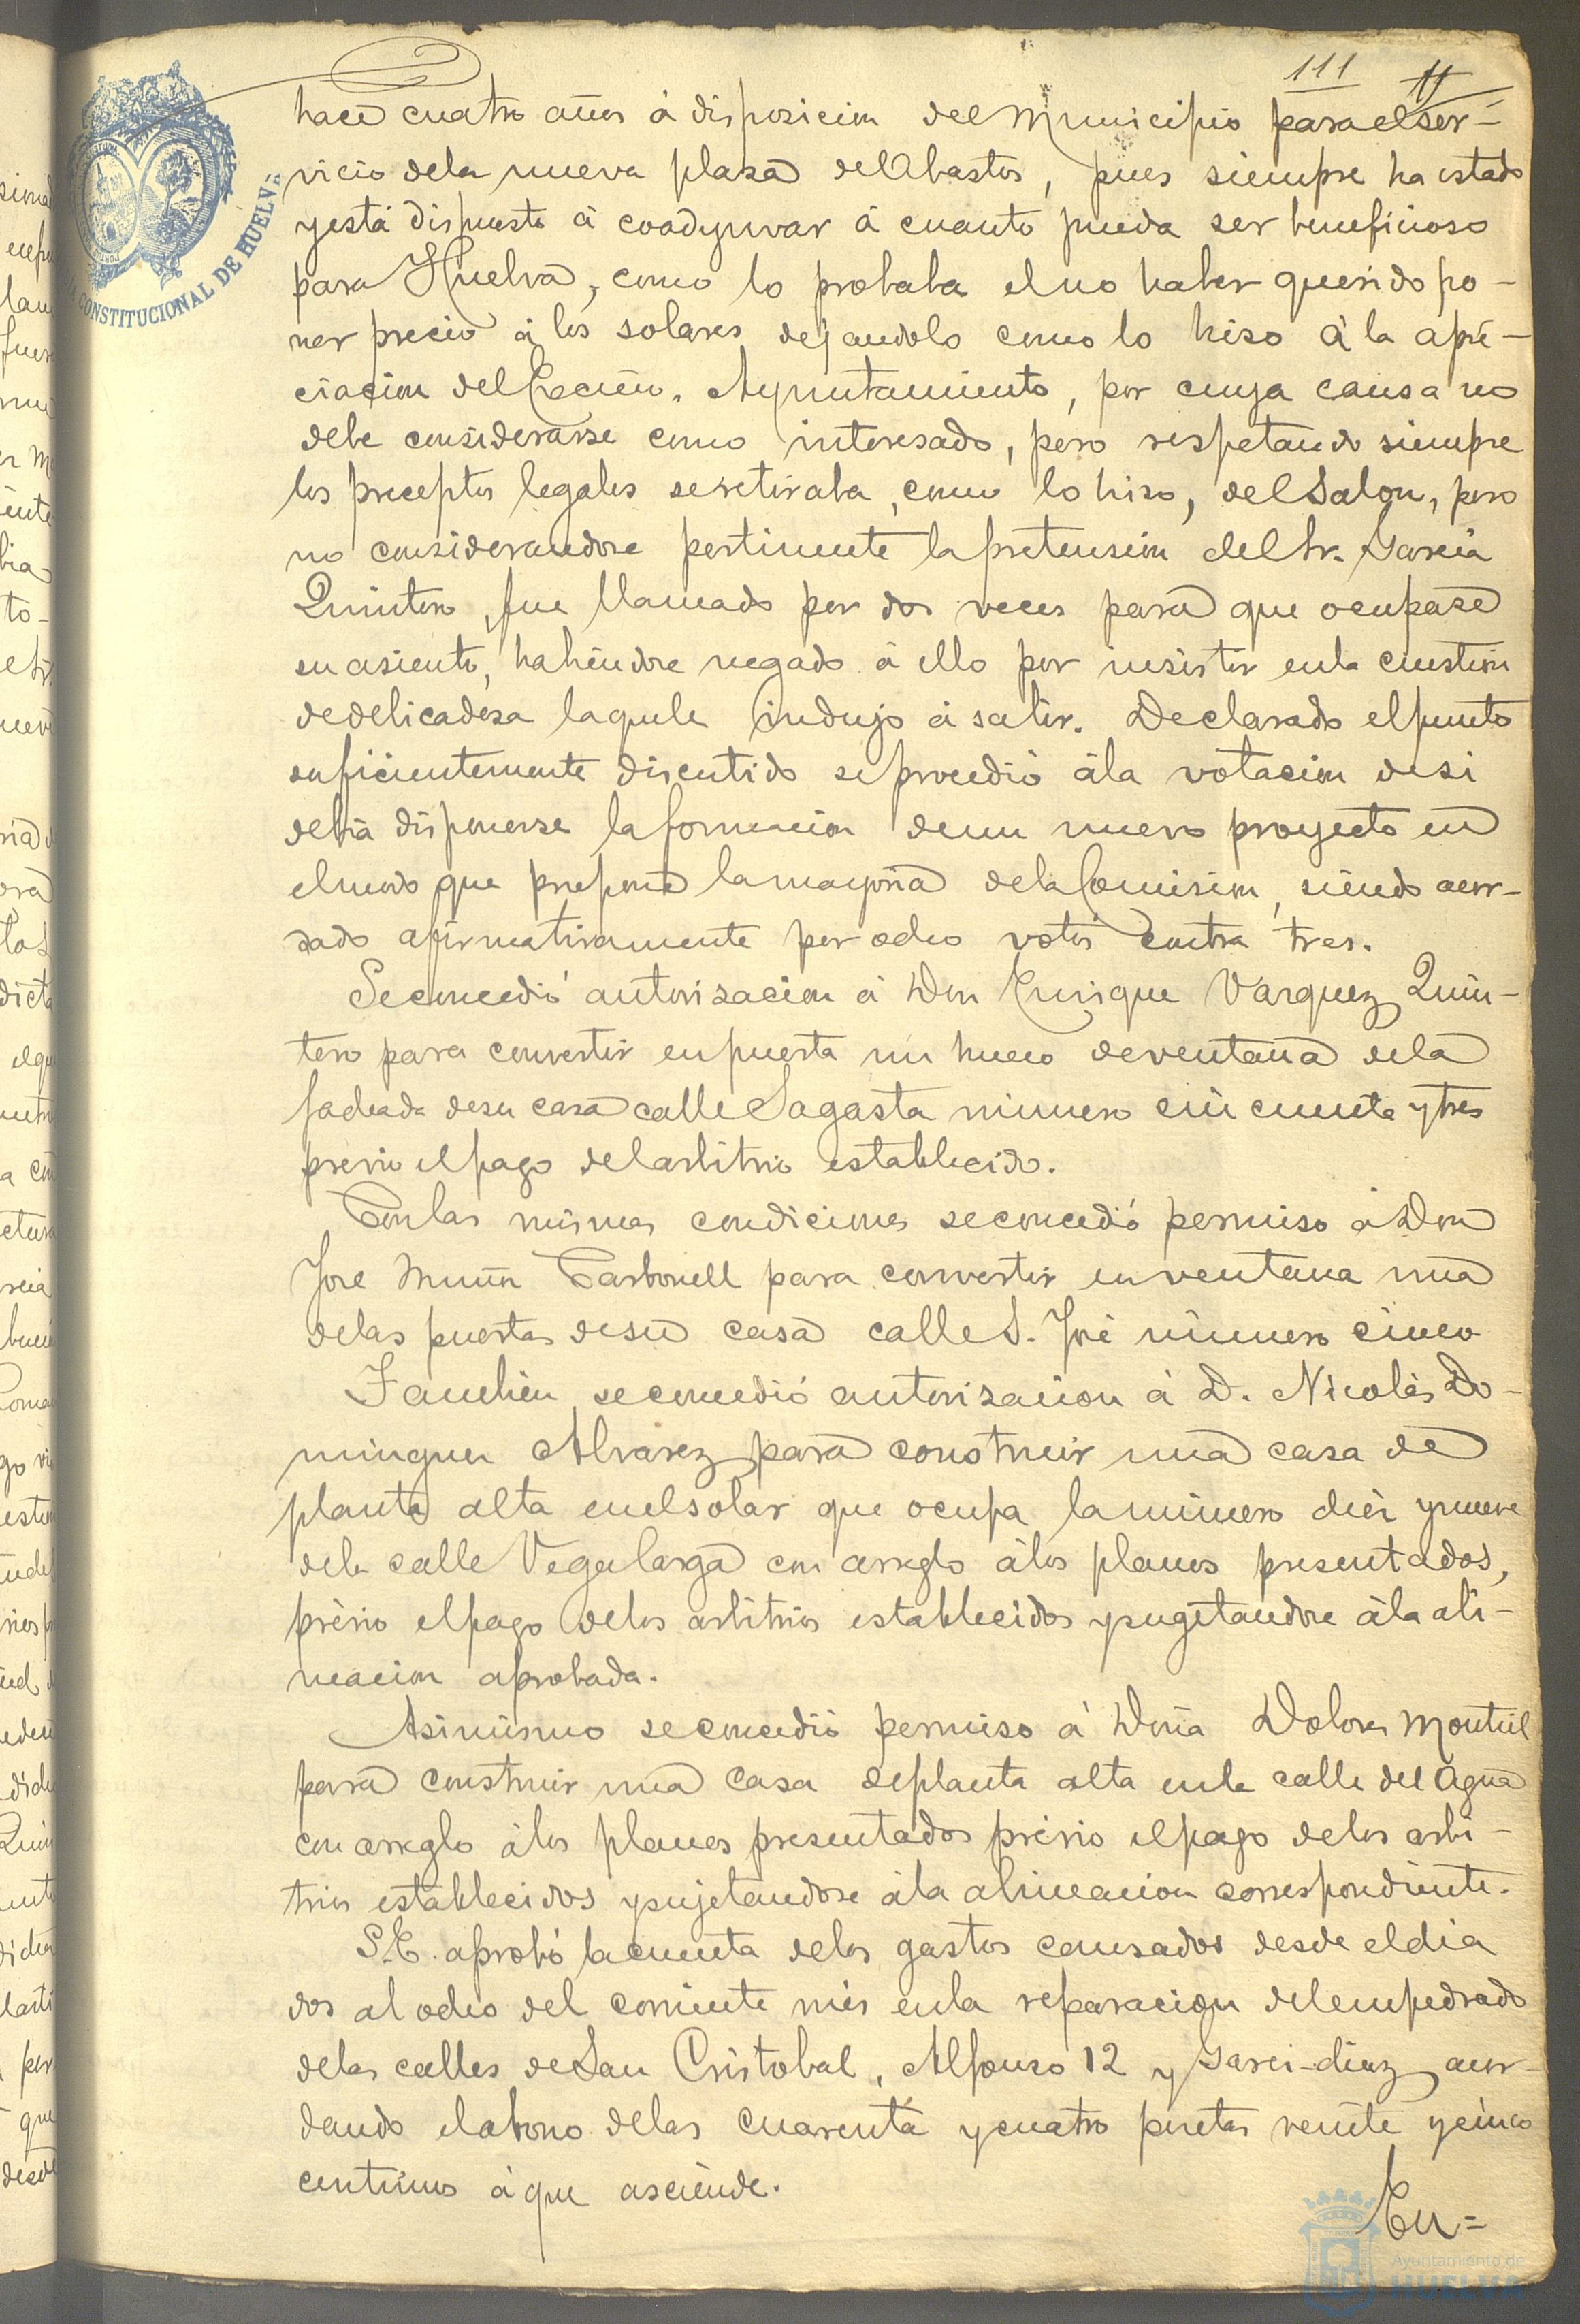 111 11
hace cuatro años á disposicion del Municipio para el ser-
vicio de la nueva plaza del Abastos, pues siempre ha estado
y está dispuesto á coadyuvar á cuanto pueda ser beneficioso
para Huelva, como lo probaba el no haber querido po-
ner precio á los solares dejandolo como lo hiso á la apre-
ciacion del Excmo. Ayuntamiento, por cuya causa no
debe considerarse como interesado, pero respetando siempre
los preceptos legales se retiraba, como lo hizo, del Salon, pero
no considerandose pertinente la pretension del Sr. Garcia
Quintero, fue llamado por dos veces para que ocupase
su asiento, habiendose negado á ello por insistir en la cuestion
de delicadesa la que le indujo á salir. Declarado el punto
suficientemente discutido se procedió á la votacion de si
debia disponerse la formacion de un nuevo proyecto en
el modo que propone la mayoria de la Comision, siendo acor-
dado afirmativamente por ocho votos contra tres.
Se concedió autorisacion á Don Enrique Vazquez Quin-
tero para convertir en puerta un hueco de ventana de la
fachada de su casa calle Sagasta número cincuenta y tres
previo el pago del arbitrio establecido.
Con las mismas condiciones se concedió permiso á Don
José Muñoz Carbonell para convertir en ventana una
de las puertas de su casa calle S. José número cinco
Tambien se concedió autorisacion á D. Nicolás Do-
minguez Alvarez para construir una casa de
planta alta en el solar que ocupa la número diez y nueve
de la calle Vega larga con arreglo á los planos presentados,
prévio el pago de los arbitrios establecidos y sugetandose á la ali-
neacion aprobada.
Asimismo se concedió permiso á Doña Dolores Montiel
para construir una casa de planta alta en la calle del Agua
con arreglo á los planos presentados prévio el pago de los arbi-
trios establecidos y sujetandose á la alineacion correspondiente.
S.E. aprobó la cuenta de los gastos causados desde el dia
dos al ocho del corriente mes en la reparacion del empedrado
de las calles de San Cristobal, Alfonso 12 y Garci-diaz acor-
dando el abono de las cuarenta y cuatro pesetas veinte y cinco
centimos á que asciende.
En=
CONSTITUCIONAL DE HUELVA
Ayuntamiento de
HUELVA